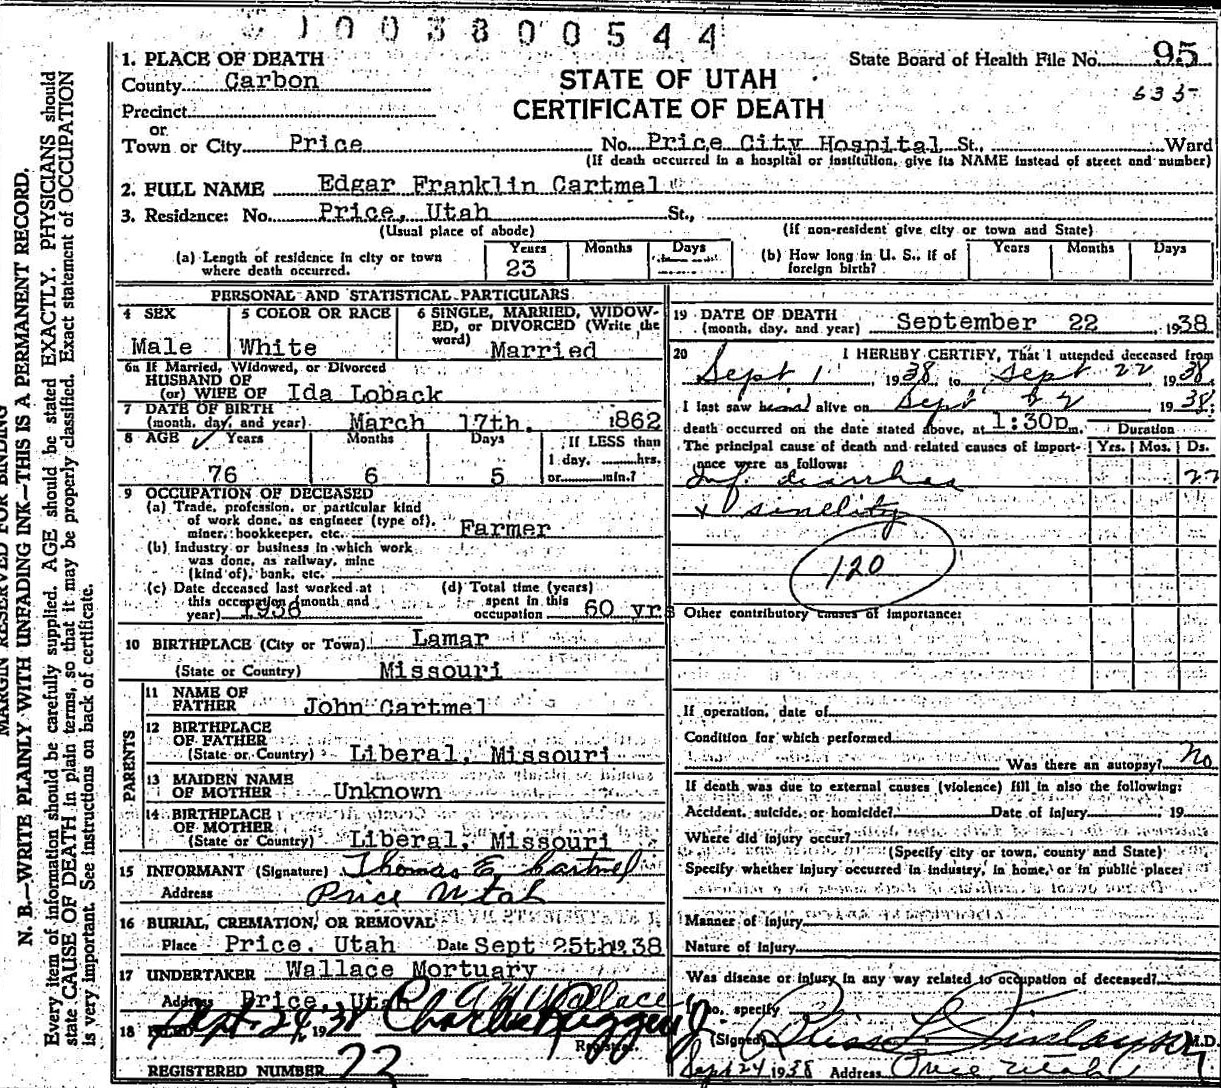 1003800544
1. PLACE OF DEATH
State Board of Health File No. 95
County Carbon
STATE OF UTAH
635
Precinct
CERTIFICATE OF DEATH
or
Town or City Price No. Price City Hospital St., Ward
(If death occurred in a hospital or institution, give its NAME instead of street and number)
2. FULL NAME Edgar Franklin Cartmel
3. Residence: No. Price, Utah St.,
(Usual place of abode) (If non-resident give city or town and State)
(a) Length of residence in city or town where death occurred. Years 23 Months Days
(b) How long in U. S., if of foreign birth? Years Months Days
PERSONAL AND STATISTICAL PARTICULARS
4 SEX Male
5 COLOR OR RACE White
6 SINGLE, MARRIED, WIDOWED, or DIVORCED (Write the word) Married
6a If Married, Widowed, or Divorced
HUSBAND OF
(or) WIFE OF Ida Loback
7 DATE OF BIRTH
(month, day, and year) March 17th. 1862
8 AGE Years Months Days If LESS than
1 day, hrs.
76 6 5 or min.?
9 OCCUPATION OF DECEASED
(a) Trade, profession, or particular kind
of work done, as engineer (type of),
miner, bookkeeper, etc. Farmer
(b) Industry or business in which work
was done, as railway, mine
(kind of), bank, etc.
(c) Date deceased last worked at
this occupation (month and
year) 1936
(d) Total time (years)
spent in this
occupation 60 yrs
10 BIRTHPLACE (City or Town) Lamar
(State or Country) Missouri
PARENTS
11 NAME OF
FATHER John Cartmel
12 BIRTHPLACE
OF FATHER
(State or Country) Liberal, Missouri
13 MAIDEN NAME
OF MOTHER Unknown
14 BIRTHPLACE
OF MOTHER
(State or Country) Liberal, Missouri
15 INFORMANT (Signature) Thomas E. Cartmel
Address Price Utah
16 BURIAL, CREMATION, OR REMOVAL
Place Price, Utah Date Sept 25th 1938
17 UNDERTAKER Wallace Mortuary
Address Price, Utah Wallace
18 Sept. 24, 1938
Registrar.
REGISTERED NUMBER 72
19 DATE OF DEATH
(month, day, and year) September 22 1938
20 I HEREBY CERTIFY, That I attended deceased from
Sept 1 1938 to Sept 22 1938
I last saw alive on Sept 22 1938
death occurred on the date stated above, at 1:30p m. Duration
The principal cause of death and related causes of importance were as follows: Yrs. Mos. Ds.
Inf. diarrhea 22
+ senility
120
Other contributory causes of importance:
If operation, date of
Condition for which performed
Was there an autopsy? No
If death was due to external causes (violence) fill in also the following:
Accident, suicide, or homicide? Date of Injury , 19
Where did injury occur?
(Specify city or town, county and State)
Specify whether injury occurred in industry, in home, or in public place:
Manner of Injury
Nature of Injury
Was disease or injury in any way related to occupation of deceased?
If so, specify
(Signed) M.D.
Sept 24 1938 Address Price Utah
MARGIN RESERVED FOR BINDING
N. B.—WRITE PLAINLY WITH UNFADING INK—THIS IS A PERMANENT RECORD.
Every item of information should be carefully supplied. AGE should be stated EXACTLY. PHYSICIANS should
state CAUSE OF DEATH in plain terms, so that it may be properly classified. Exact statement of OCCUPATION
is very important. See instructions on back of certificate.